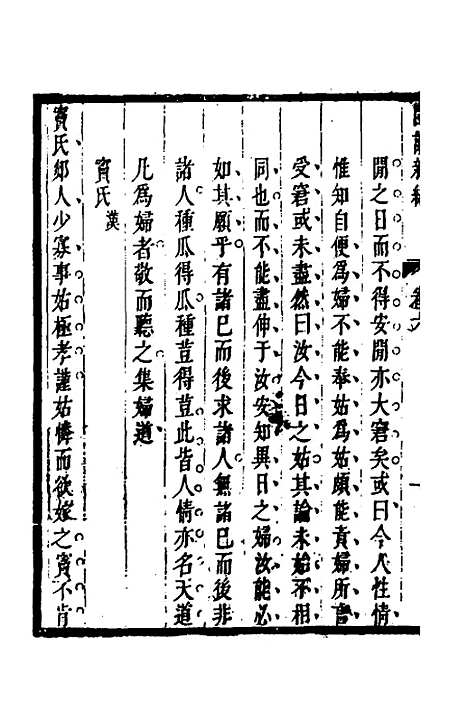 卷六
閒之日而不得安閒亦大窘矣或曰今人性情
惟知自便爲婦不能奉姑爲姑頗能責婦所言
受窘或未盡然曰汝今日之姑其論未始不相
同也而不能盡伸于汝安知異日之婦汝能必
如其願乎有諸已而後求諸人無諸已而後非
諸人種瓜得瓜種荳得荳此皆人情亦名天道
凡爲婦者敬而聽之集婦道
竇氏 漢
竇氏郯人少寡事姑極孝謹姑憐而欲嫁之竇不肯